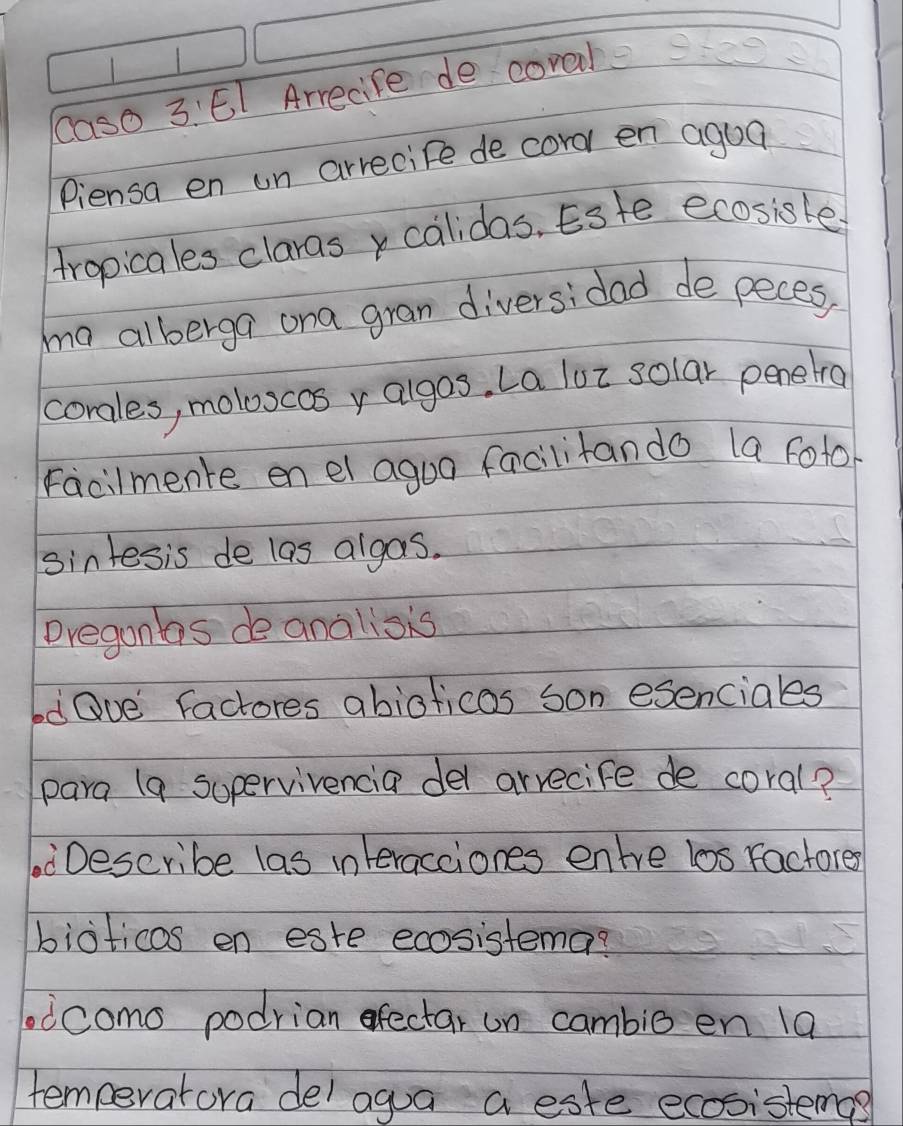 Caso 3: El Arrecife de coral
Piensa en un arrecife de coral en agua
tropicales claras y cálidas. Este ecosiste-
ma alberga una gran diversidad de peces,
corales, moluscos y algas. La luz solar penetra
Fácilmente en el agua facilitando la foto-
sintesis de las algas.
Preguntas de análisis
• ¿Qué Factores abióticos son esenciales
para la supervivencia del arrecife de coral?
• ¿Describe las interacciones entre los Factores
bióticos en este ecosistema?
• ¿como podrian afectar un cambio en la
temperatura del agua a este ecosistema?